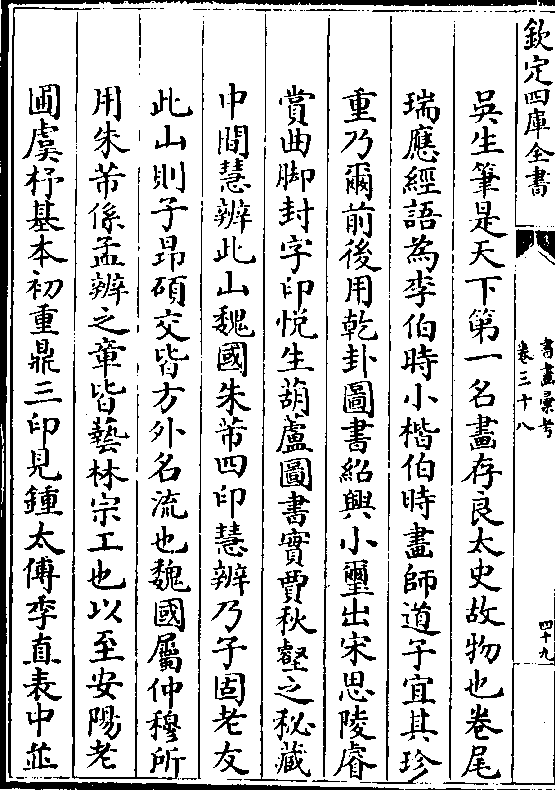 欽定四庫全書
書畫彙考
卷三十八
四十九
吳生筆是天下第一名畫存良太史故物也卷尾
瑞應經語為李伯時小楷伯時畫師道子宜其珍
重乃爾前後用乾卦圖書紹興小璽出宋思陵睿
賞曲脚封字印悦生葫蘆圖書實賈秋壑之秘藏
中間慧辨此山魏國朱芾四印慧辨乃子固老友
此山則子昂碩交皆方外名流也魏國屬仲穆所
用朱芾係孟辨之章皆藝林宗工也以至安陽老
圃虞杼基本初重鼎三印見鍾太傅季直表中並